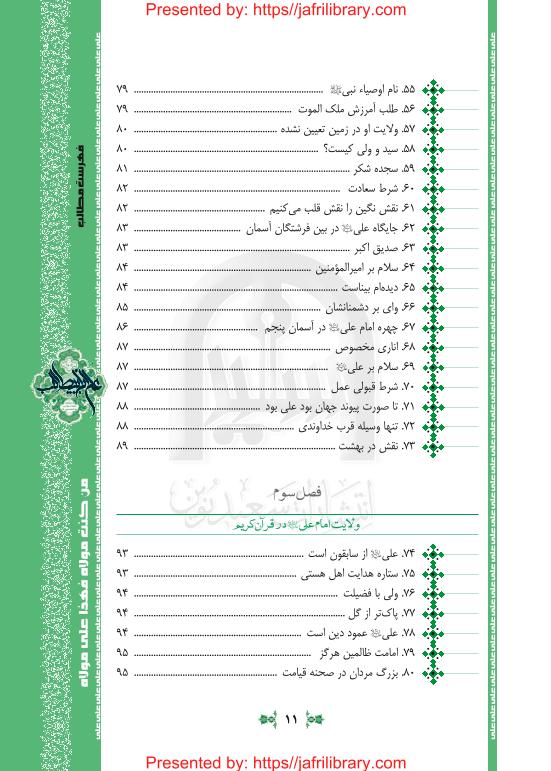 Presented by: https://jafrilibrary.com
۵۵. نام اوصیاء نبیﷺ ........ ۷۹
۵۶. طلب آمرزش ملک الموت ........ ۷۹
۵۷. ولایت او در زمین تعیین نشده ........ ۸۰
۵۸. سید و ولی کیست؟ ........ ۸۰
۵۹. سجده شکر ........ ۸۱
۶۰. شرط سعادت ........ ۸۲
۶۱. نقش نگین را نقش قلب می‌کنیم ........ ۸۲
۶۲. جایگاه علی در بین فرشتگان آسمان ........ ۸۳
۶۳. صدیق اکبر ........ ۸۳
۶۴. سلام بر امیرالمؤمنین ........ ۸۴
۶۵. دیده‌ام بیناست ........ ۸۴
۶۶. وای بر دشمنانشان ........ ۸۵
۶۷. چهره امام علی در آسمان پنجم ........ ۸۶
۶۸. اناری مخصوص ........ ۸۷
۶۹. سلام بر علی ........ ۸۷
۷۰. شرط قبولی عمل ........ ۸۷
۷۱. تا صورت پیوند جهان بود علی بود ........ ۸۸
۷۲. تنها وسیله قرب خداوندی ........ ۸۸
۷۳. نقش در بهشت ........ ۸۹
فصل سوم
ولایت امام علی در قرآن کریم
۷۴. علی از سابقون است ........ ۹۳
۷۵. ستاره هدایت اهل هستی ........ ۹۳
۷۶. ولی با فضیلت ........ ۹۴
۷۷. پاک‌تر از گل ........ ۹۴
۷۸. علی عمود دین است ........ ۹۴
۷۹. امامت ظالمین هرگز ........ ۹۵
۸۰. بزرگ مردان در صحنه قیامت ........ ۹۵
۱۱
فهرست مطالب
علی بن ابیطالب
من کنت مولاه فهذا علی مولاه
انتشارات سعید نوین
Presented by: https://jafrilibrary.com